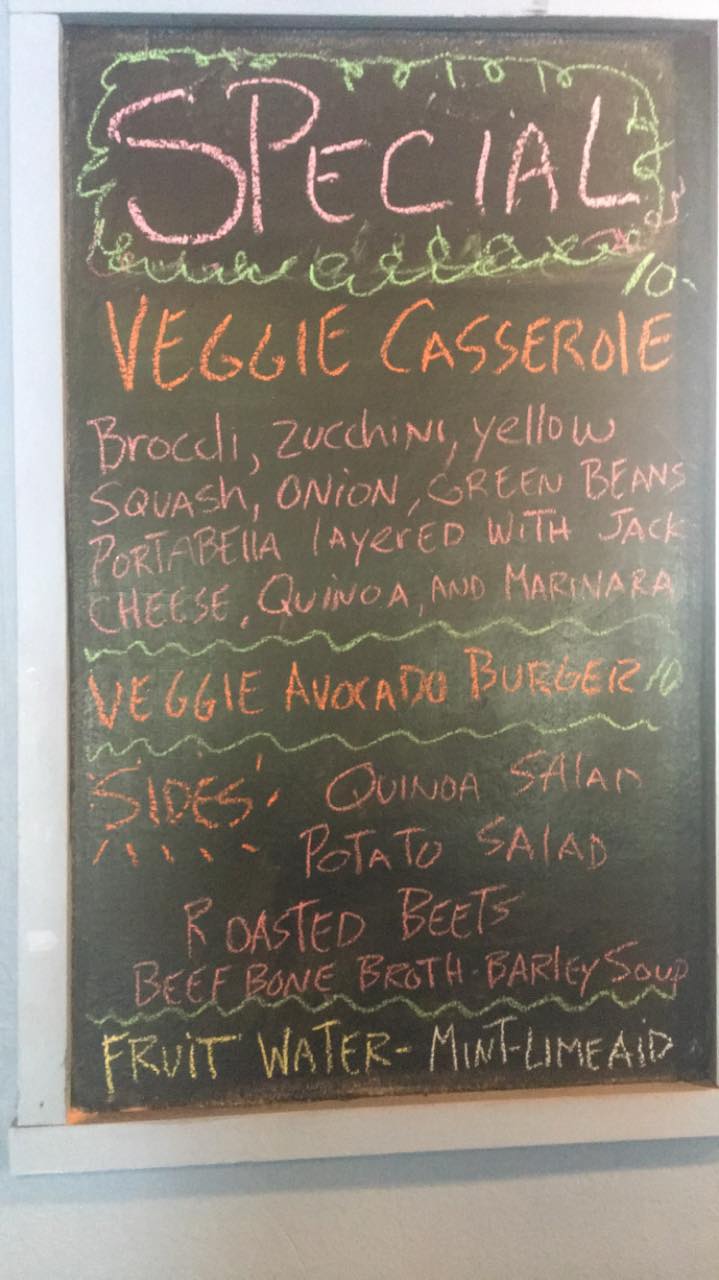 SPECIAL
10-
VEGGIE CASSEROlE
Broccli, zucchiNi, yellow
SQUASh, ONiON, GREEN BEANS
PORTABEllA lAyerED WiTH JACK
CHEESE, QuiNOA, AND MARINARA
VEGGIE AVOCADO BURGER 10
"SIDES" QUINOA SAlAD
POTATO SAlAD
ROASTED BEETS
BEEF BONE BROTH-BARlEy Soup
FRUiT WATER- MINT-LIMEAID